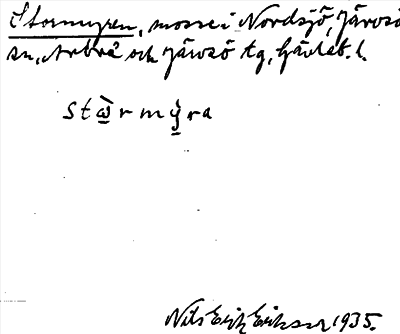 Stormyren, mosse i Nordsjö, Järvsö
sn, Arbrå och Järvsö tg, Gävleb. l.
stὼ̠rmỳ̠ra
Nils Erik Eriksson 1935.